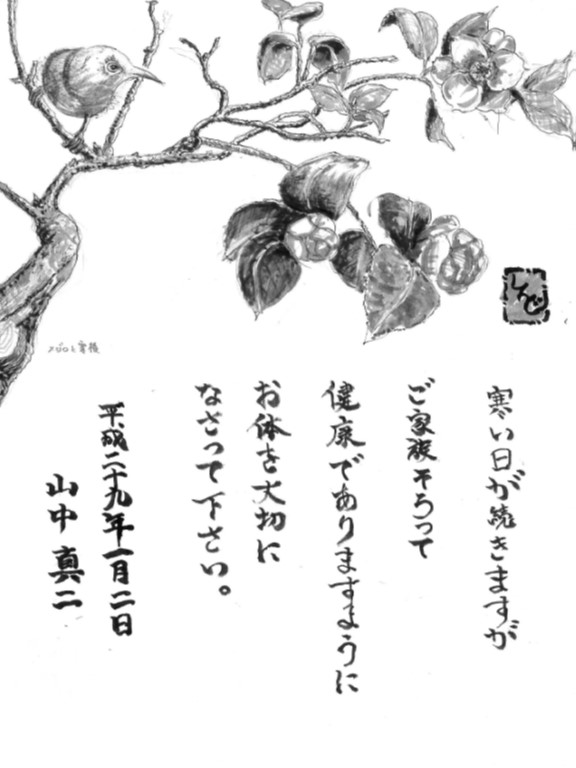 寒い日が続きますが
ご家族そろって
健康でありますように
お体を大切に
なさって下さい。
平成二十九年一月二日
山中真二
しんじ
メジロと寒椿